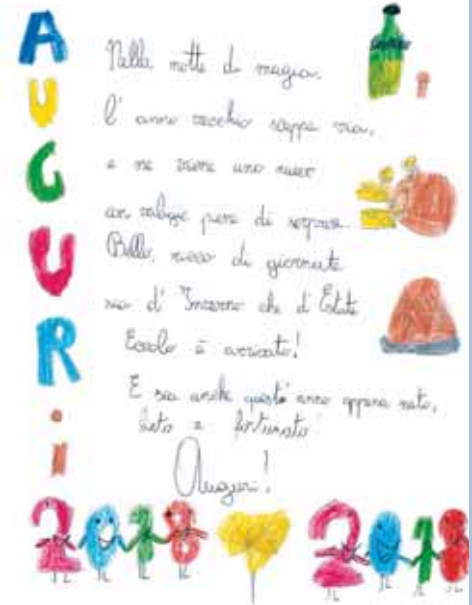 AUGURi
Nella notte di magia,
l'anno vecchio scappa via,
e ne viene uno nuovo
con valigie piene di sorprese
Bello, ricco di giornate
sia d'Inverno che d'Estate
Eccolo è arrivato!
E sia anche quest'anno appena nato,
lieto e fortunato
Auguri!
2018 2018